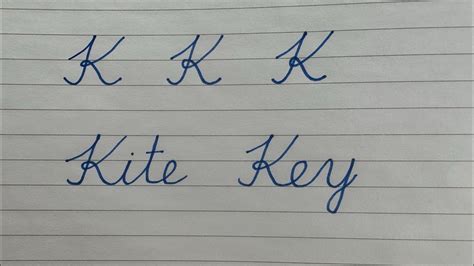 K K K
Kite Key